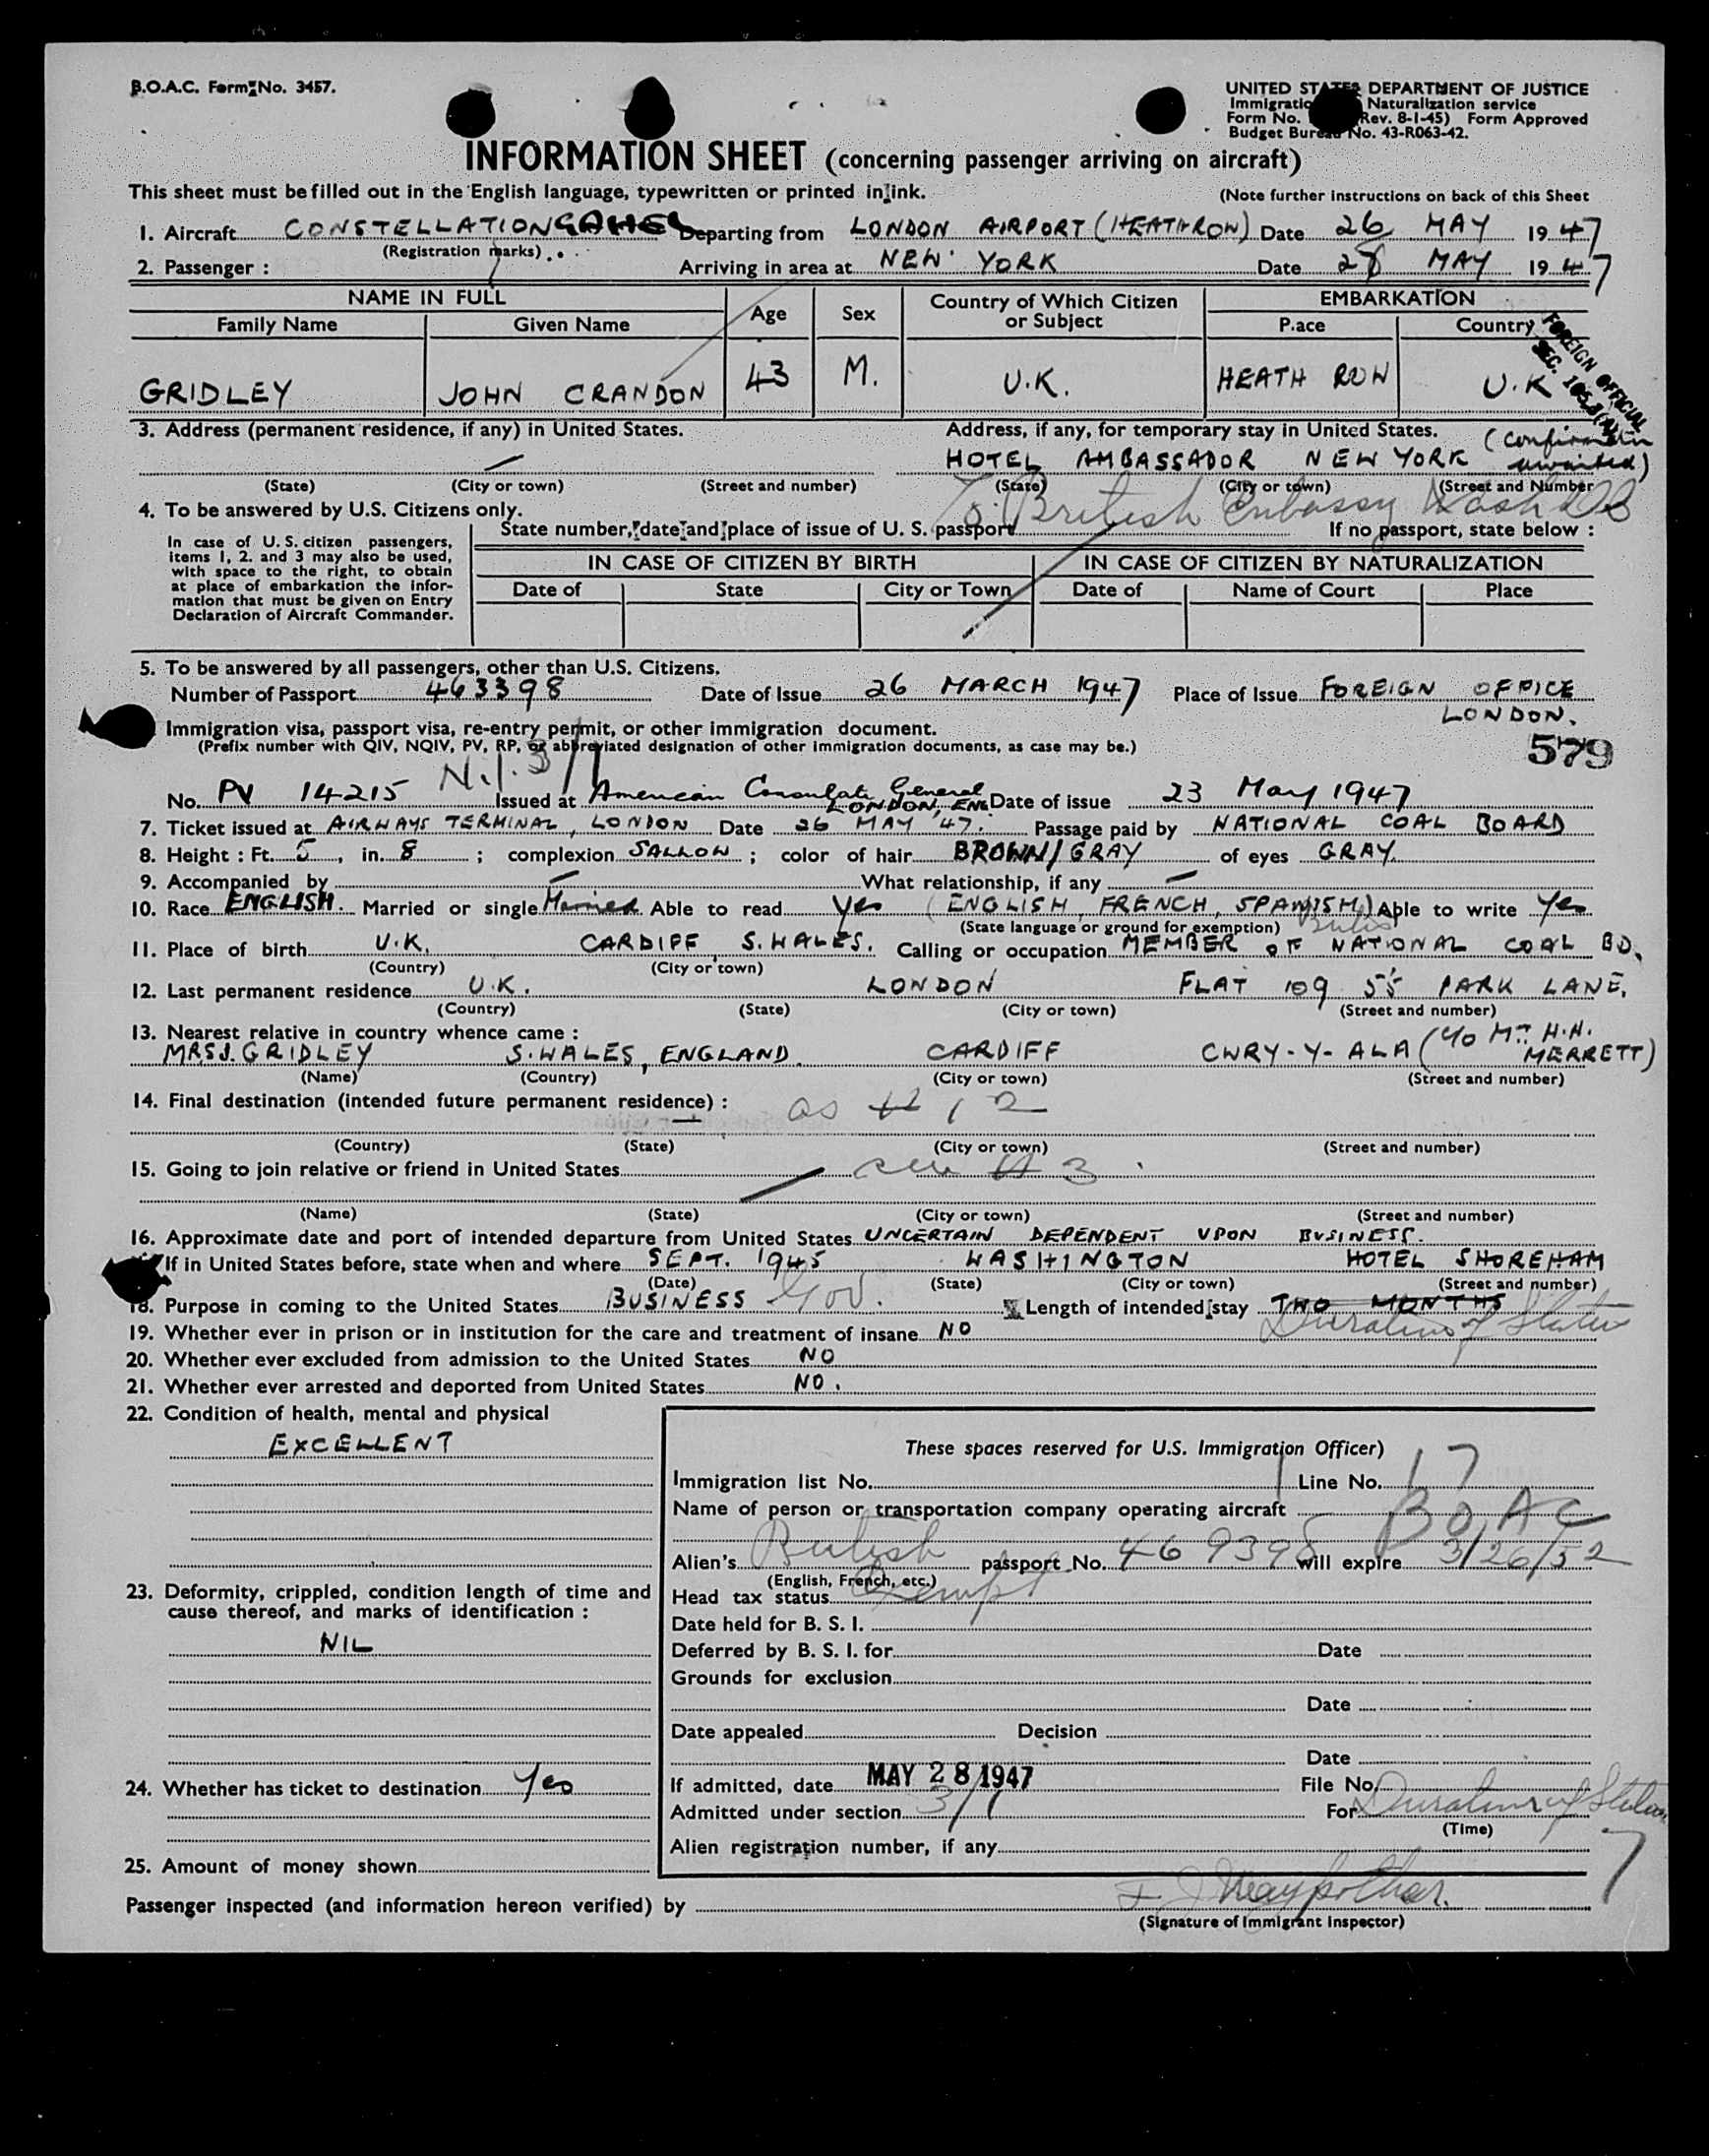 B.O.A.C. Form No. 3457.
UNITED STATES DEPARTMENT OF JUSTICE
Immigration Naturalization service
Form No. (Rev. 8-1-45) Form Approved
Budget Bureau No. 43-R063-42.
INFORMATION SHEET (concerning passenger arriving on aircraft)
This sheet must be filled out in the English language, typewritten or printed in ink. (Note further instructions on back of this Sheet
1. Aircraft CONSTELLATION Departing from LONDON AIRPORT (HEATHROW) Date 26 MAY 1947
(Registration marks)
2. Passenger : Arriving in area at NEW YORK Date 28 MAY 1947
NAME IN FULL Age Sex Country of Which Citizen or Subject EMBARKATION
Family Name Given Name P.ace Country
GRIDLEY JOHN CRANDON 43 M. U.K. HEATH ROW U.K
FOREIGN OFFICIAL
3. Address (permanent residence, if any) in United States. Address, if any, for temporary stay in United States. (confirmation
HOTEL AMBASSADOR NEW YORK awaited)
(State) (City or town) (Street and number) (State) (City or town) (Street and Number
c/o British Embassy Wash DC
4. To be answered by U.S. Citizens only.
State number, date and place of issue of U. S. passport If no passport, state below :
In case of U. S. citizen passengers,
items 1, 2. and 3 may also be used,
with space to the right, to obtain
at place of embarkation the infor-
mation that must be given on Entry
Declaration of Aircraft Commander.
IN CASE OF CITIZEN BY BIRTH IN CASE OF CITIZEN BY NATURALIZATION
Date of State City or Town Date of Name of Court Place
5. To be answered by all passengers, other than U.S. Citizens.
Number of Passport 463398 Date of Issue 26 MARCH 1947 Place of Issue FOREIGN OFFICE
LONDON.
Immigration visa, passport visa, re-entry permit, or other immigration document.
(Prefix number with QIV, NQIV, PV, RP, or abbreviated designation of other immigration documents, as case may be.)
579
N.I. 3/1
No. PV 14215 Issued at American Consulate General LONDON, ENG Date of issue 23 May 1947
7. Ticket issued at AIRWAYS TERMINAL, LONDON Date 26 MAY '47. Passage paid by NATIONAL COAL BOARD
8. Height : Ft. 5, in. 8 ; complexion SALLOW ; color of hair BROWN/GRAY of eyes GRAY.
9. Accompanied by — What relationship, if any —
10. Race ENGLISH. Married or single Married Able to read yes (ENGLISH, FRENCH, SPANISH) Able to write Yes
(State language or ground for exemption)
11. Place of birth U.K. CARDIFF S. WALES. Calling or occupation MEMBER OF NATIONAL COAL BD.
(Country) (City or town)
12. Last permanent residence U.K. LONDON FLAT 109 55 PARK LANE,
(Country) (State) (City or town) (Street and number)
13. Nearest relative in country whence came :
MRS J. GRIDLEY S. WALES, ENGLAND. CARDIFF CWRY-Y-ALA (c/o Mr. H.H. MERRETT)
(Name) (Country) (City or town) (Street and number)
14. Final destination (intended future permanent residence) : as # 12
(Country) (State) (City or town) (Street and number)
15. Going to join relative or friend in United States see # 3
(Name) (State) (City or town) (Street and number)
16. Approximate date and port of intended departure from United States UNCERTAIN DEPENDENT UPON BUSINESS.
If in United States before, state when and where SEPT. 1945 WASHINGTON HOTEL SHOREHAM
(Date) (State) (City or town) (Street and number)
18. Purpose in coming to the United States BUSINESS Gov. Length of intended stay TWO MONTHS
Duration of Status
19. Whether ever in prison or in institution for the care and treatment of insane NO
20. Whether ever excluded from admission to the United States NO
21. Whether ever arrested and deported from United States NO.
22. Condition of health, mental and physical
EXCELLENT
These spaces reserved for U.S. Immigration Officer)
Immigration list No. Line No. 17
Name of person or transportation company operating aircraft BOAC
Alien's British passport No. 469398 will expire 3/26/52
(English, French, etc.)
23. Deformity, crippled, condition length of time and
cause thereof, and marks of identification :
NIL
Head tax status Exempt
Date held for B. S. I.
Deferred by B. S. I. for Date
Grounds for exclusion
Date
Date appealed Decision
Date
24. Whether has ticket to destination Yes
If admitted, date MAY 28 1947 File No.
Admitted under section 3/1 For Duration of Status
(Time)
7
Alien registration number, if any
25. Amount of money shown
Passenger inspected (and information hereon verified) by
(Signature of Immigrant Inspector)